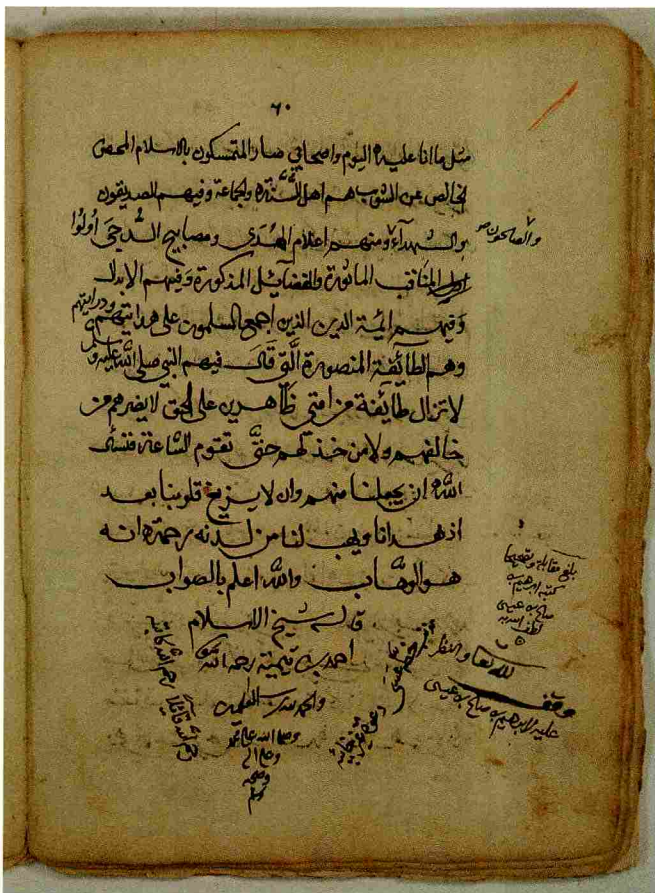 ٦٠
مثل ما انا عليه اليوم واصحابي صار المتمسكون بالاسلام المحض
الخالص عن الشوب هم اهل السنة والجماعة وفيهم الصديقون
والشهداء ومنهم اعلام الهدى ومصابيح الدجى أولوا
والصالحون صح
المناقب الماثورة والفضايل المذكورة وفيهم الابدال
وفيهم ايمة الدين الذين اجمع المسلمون على هدايتهم ودرايتهم
وهم الطايفة المنصورة التي قال فيهم النبي صلى الله عليه وسلم
لا تزال طايفة من امتي ظاهرين على الحق لا يضرهم من
خالفهم ولا من خذلهم حتى تقوم الساعة فنسئل
الله ان يجعلنا منهم وان لا يزيغ قلوبنا بعد
اذ هدانا ويهب لنا من لدنه رحمة انه
هو الوهاب والله اعلم بالصواب
قاله شيخ الاسلام
احمد بن تيمية رحمه الله
والحمد لله رب العلمين
وصلى الله على محمد
وعلى اله
وصحبه
وسلم
بلغ مقابلة وتصحيحا
كتبه ابرهيم بن
صالح بن عيسى
لطف الله به
وقف لله تعا والنظر
عليه لابرهيم بن صالح بن عيسى